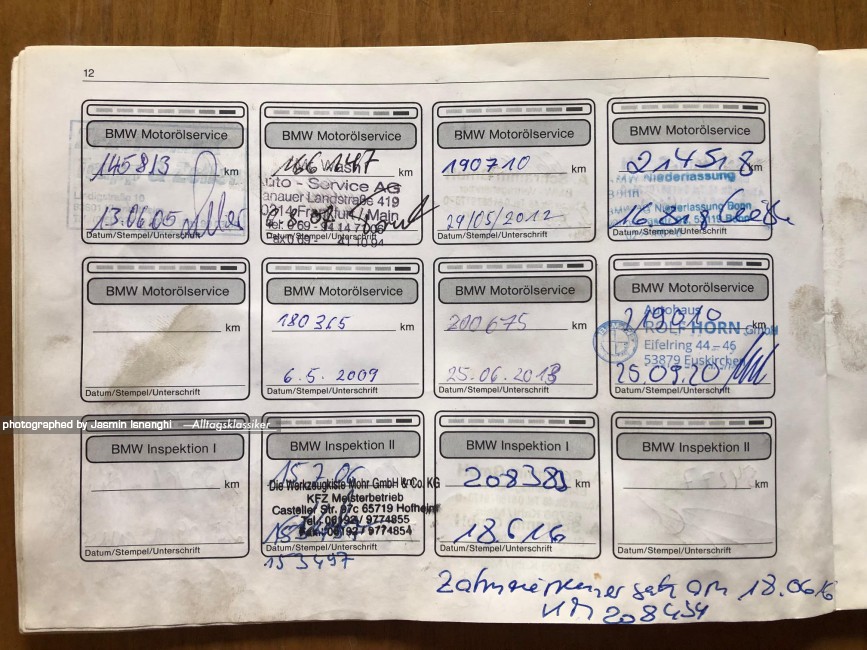 12
BMW Motorölservice
145813 km
13.06.05
Datum/Stempel/Unterschrift
BMW Motorölservice
166147 km
Auto - Service AG
Hanauer Landstraße 419
Frankfurt / Main
Datum/Stempel/Unterschrift
BMW Motorölservice
190710 km
29/05/2012
Datum/Stempel/Unterschrift
BMW Motorölservice
214518 km
BMW Niederlassung
Bonn
BMW Niederlassung Bonn
16.8.18
Datum/Stempel/Unterschrift
BMW Motorölservice
km
Datum/Stempel/Unterschrift
BMW Motorölservice
180365 km
6.5.2009
Datum/Stempel/Unterschrift
BMW Motorölservice
200675 km
25.06.2013
Datum/Stempel/Unterschrift
BMW Motorölservice
219010 km
Autohaus
ROLF HORN GmbH
Eifelring 44–46
53879 Euskirchen
25.09.20
Datum/Stempel/Unterschrift
photographed by Jasmin Isnenghi —Alltagsklassiker
BMW Inspektion I
km
Datum/Stempel/Unterschrift
BMW Inspektion II
15.2.06
Die Werkzeugkiste Mohr GmbH & Co. KG
KFZ Meisterbetrieb
Casteller Str. 97c 65719 Hofheim
Tel.: 06192 / 9774855
Fax.: 06192 / 9774854
Datum/Stempel/Unterschrift
153497
BMW Inspektion I
208383 km
18.6.16
Datum/Stempel/Unterschrift
BMW Inspektion II
km
Datum/Stempel/Unterschrift
am 18.06.16
KM 208434